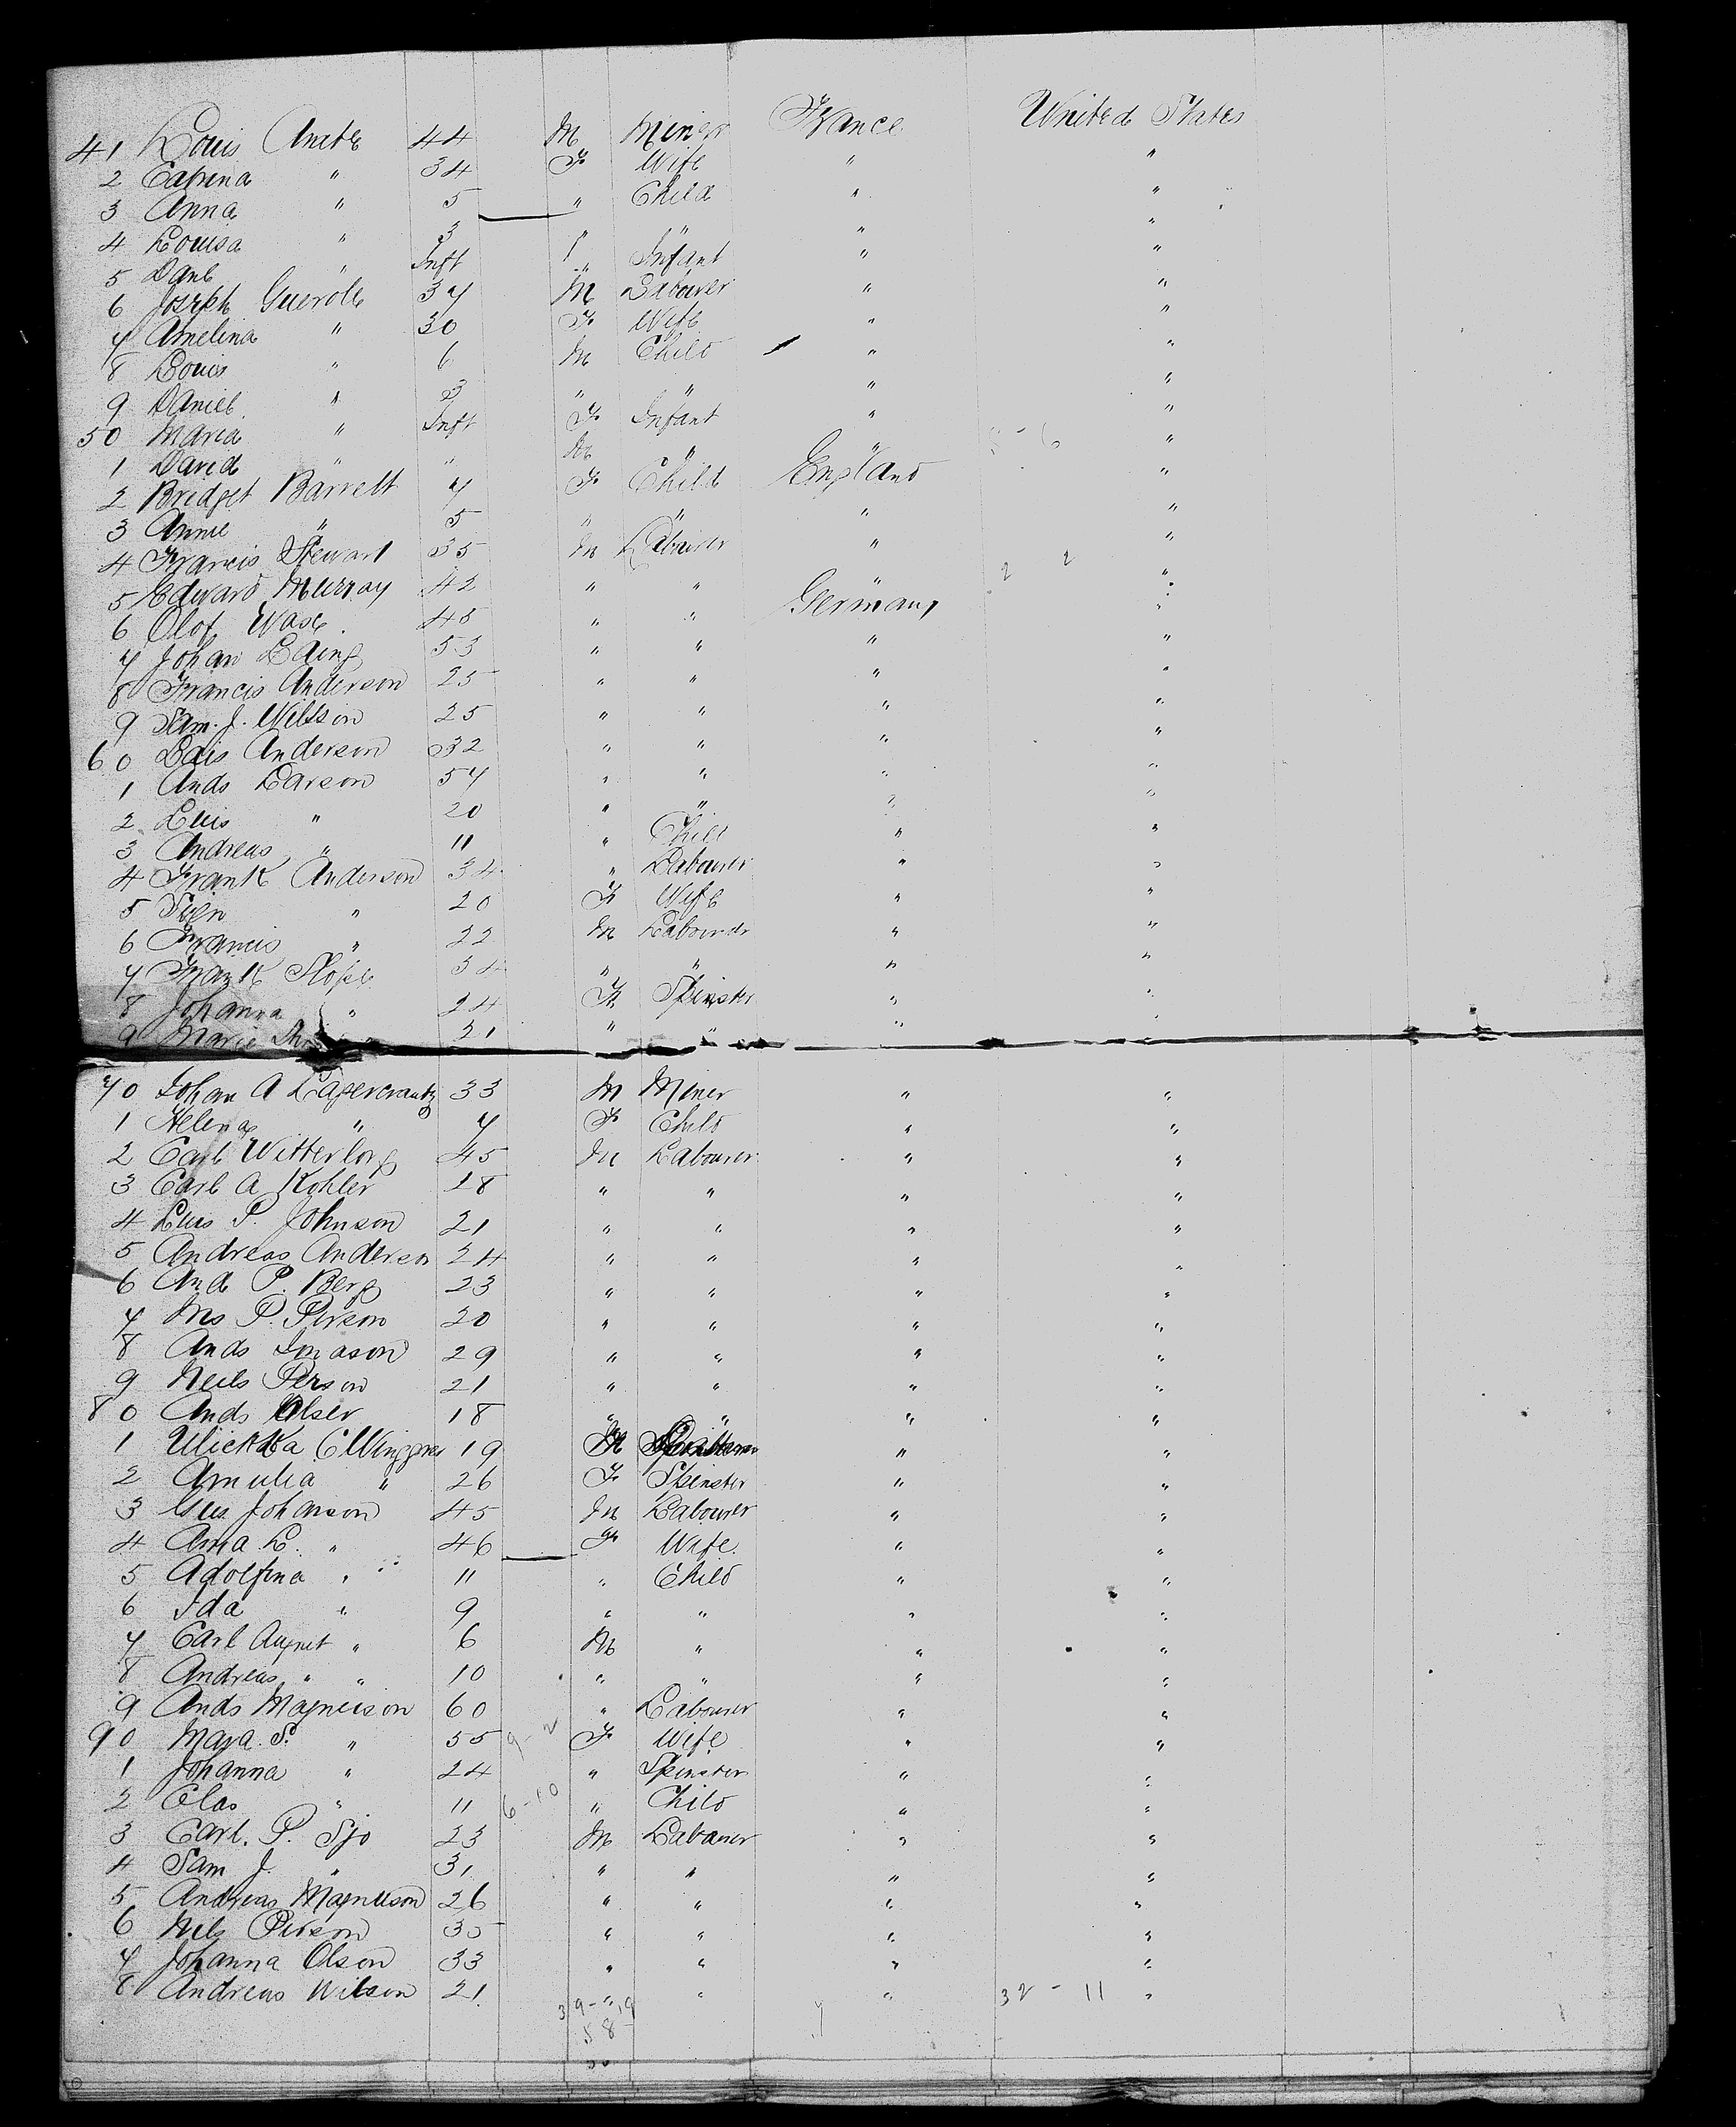 41 Louis Anete 44 M Miner France United States
2 Catrina " 34 F Wife " "
3 Anna " 5 " Child " "
4 Louisa " 3 " " " "
5 Danl " Inft " Infant " "
6 Joseph Guerole 37 M Labourer " "
7 Amelina " 30 F Wife " "
8 Louis " 6 M Child " "
9 Daniel " 3 " " " "
50 Maria " Inft F Infant " "
1 David " " M " " "
2 Bridget Barrett 7 F Child England "
3 Annie " 5 " " " "
4 Francis Stewart 35 M Labourer " "
5 Edward Murray 42 " " " "
6 Olof Wase 45 " " Germany "
7 Johan Laing 53 " " " "
8 Francis Anderson 25 " " " "
9 Sam. J. Wilsson 25 " " " "
60 Lais Anderson 32 " " " "
1 Ands Larson 57 " " " "
2 Luis " 20 " " " "
3 Andreas " 11 " Child " "
4 Frank Anderson 34 " Labourer " "
5 Sven " 20 F Wife " "
6 Francis " 22 M Labourer " "
7 Frank Slope 34 " " " "
8 Johanna " 24 F Spinster " "
9 Marie 21 " " " "
70 Johan A Lagercrantz 33 M Miner " "
1 Helena " 7 F Child " "
2 Carl Witterlorg 45 M Labourer " "
3 Carl A Kohler 28 " " " "
4 Luis P. Johnson 21 " " " "
5 Andreas Anderson 24 " " " "
6 And P. Berg 23 " " " "
7 Ms P. Person 20 " " " "
8 Ands Jonason 29 " " " "
9 Neils Person 21 " " " "
80 Ands Olser 18 " " " "
1 Ulickka C Winggren 19 M " "
2 Amulia " 26 F Spinster " "
3 Gus Johanson 45 M Labourer " "
4 Anna L. " 46 F Wife. " "
5 Adolfina " 11 " Child " "
6 Ida " 9 " " " "
7 Carl August " 6 M " " "
8 Andreas " " 10 " " " "
9 Ands Magnuison 60 " Labourer " "
90 Maja. S. " 55 9-2 F Wife " "
1 Johanna " 24 " Spinster " "
2 Clas " 11 6-10 " Child " "
3 Carl. P. Sjo 23 M Labourer " "
4 Sam J. " 31 " " " "
5 Andreas Magnusson 26 " " " "
6 Nils Person 35 " " " "
7 Johanna Olson 33 " " " "
8 Andreas Wilson 21 " " " 32 - 11 "
39-19
58